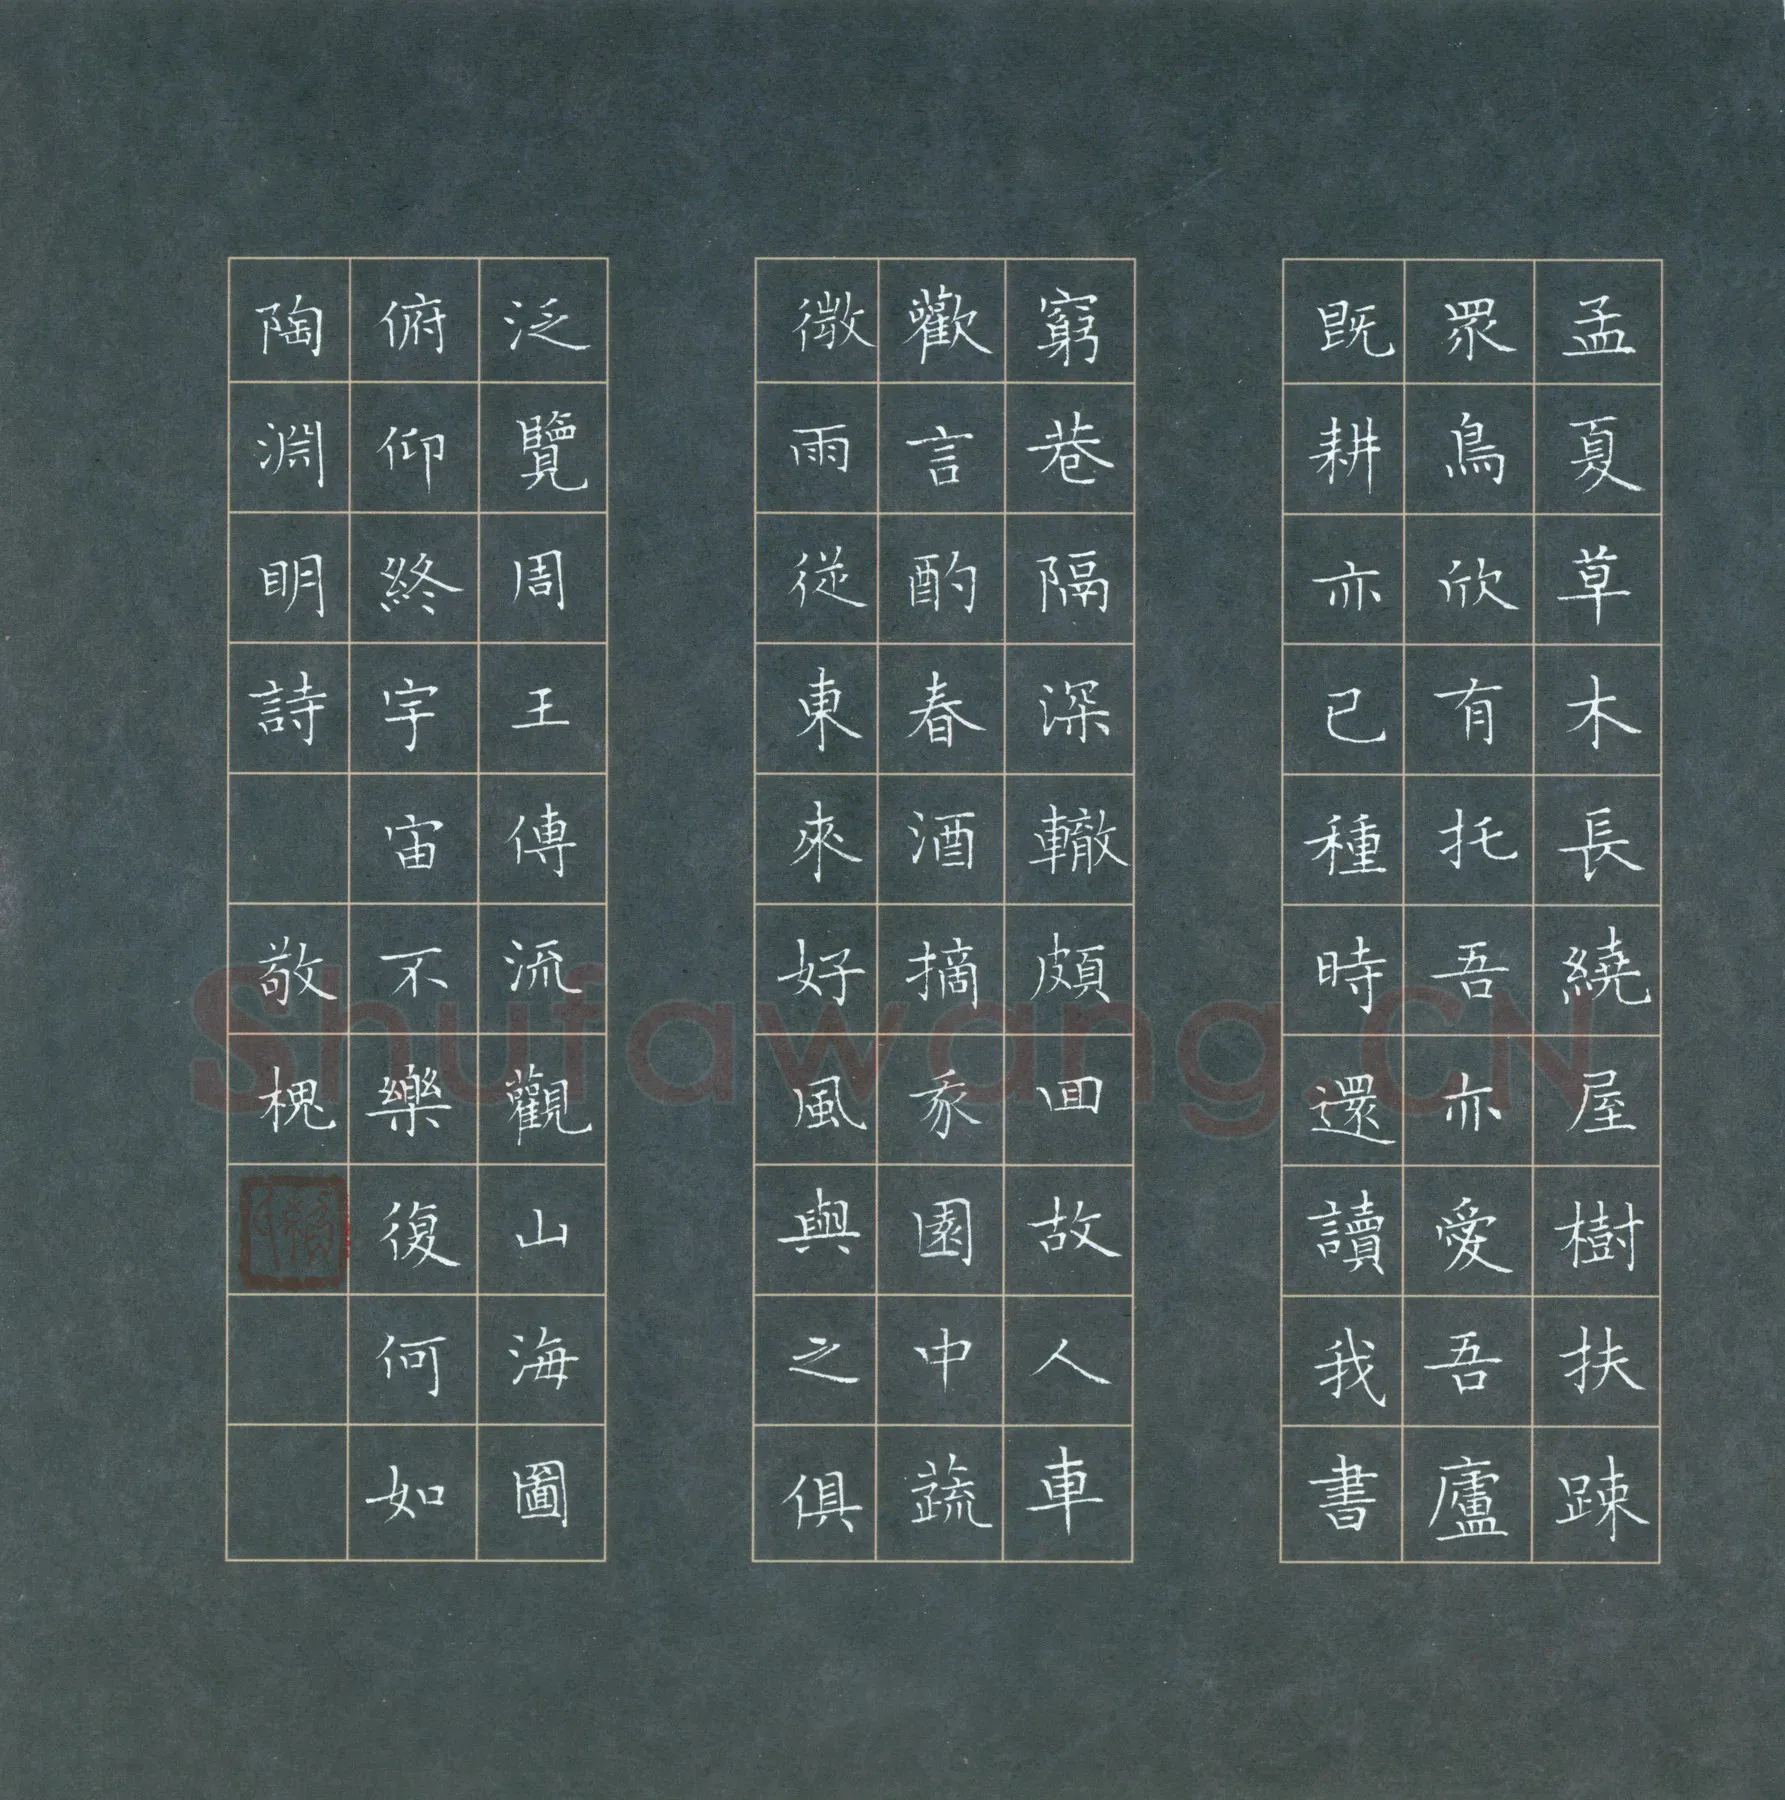 孟夏草木長繞屋樹扶踈
眾鳥欣有托吾亦愛吾廬
既耕亦已種時還讀我書
窮巷隔深轍頗囬故人車
歡言酌春酒摘我園中蔬
微雨從東來好風與之俱
泛覽周王傳流觀山海圖
俯仰終宇宙不樂復何如
陶淵眀詩 敬槐
Shufawang.CN